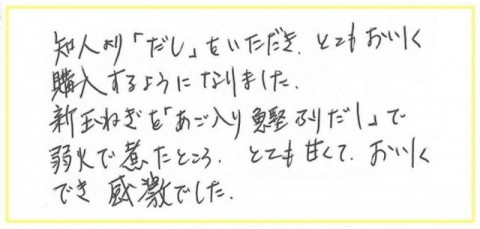 知人より「だし」をいただき、とてもおいしく
購入するようになりました。
新玉ねぎを「あご入り鰹ふりだし」で
弱火で煮たところ、とても甘くて、おいしく
でき感激でした。